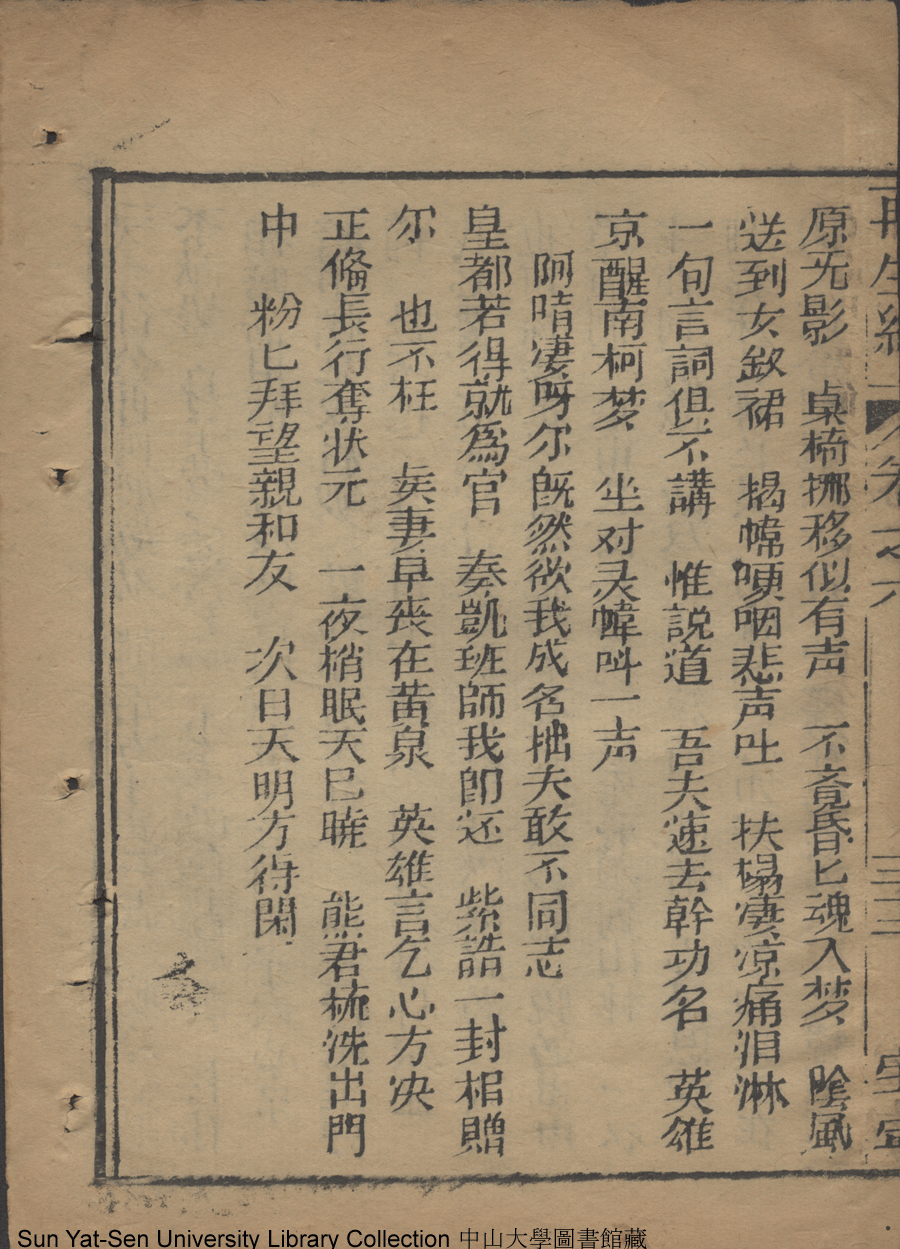 再生緣 卷之六 三三
原无影 桌椅挪移似有声 一不斉昏匕魂入梦 陰風
送到女釵裙 揭幃哽咽悲声吐 扶榻凄凉痛泪淋
一句言詞俱不講 惟説道 吾夫速去幹功名 英雄
京醒南柯梦 坐对灵幃呌一声
阿唷凄呀尔旣然欲我成名拙夫敢不同志
皇都若得就爲官 奏凱班師我卽还 紫誥一封相贈
尔 也不枉 矣妻早丧在黄泉 英雄言乞心方决
正俻長行奪状元 一夜梢眠天已曉 熊君梳洗出門
中 粉匕拜望親和友 次日天明方得閑
Sun Yat-Sen University Library Collection 中山大學圖書館藏